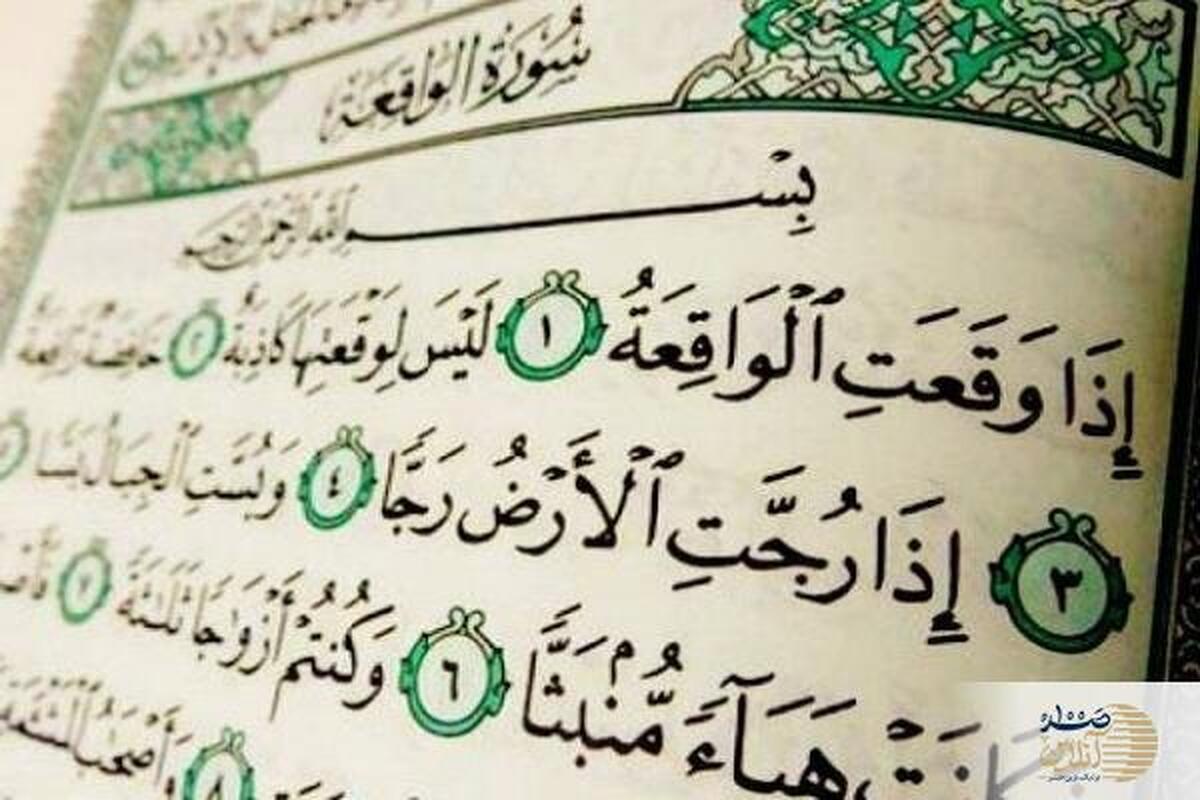 سُورَةُ الْوَاقِعَةِ
بِسْمِ اللَّهِ الرَّحْمَٰنِ الرَّحِيمِ
إِذَا وَقَعَتِ ٱلْوَاقِعَةُ ١ لَيْسَ لِوَقْعَتِهَا كَاذِبَةٌ ٢ خَافِضَةٌ رَّافِعَةٌ
٣ إِذَا رُجَّتِ ٱلْأَرْضُ رَجًّا ٤ وَبُسَّتِ ٱلْجِبَالُ بَسًّا ٥
هَبَآءً مُّنۢبَثًّا ٦ وَكُنتُمْ أَزْوَٰجًا ثَلَٰثَةً ٧
٨ وَأَصْحَٰبُ ٱلْمَشْـَٔمَةِ
صدا
آنلاین